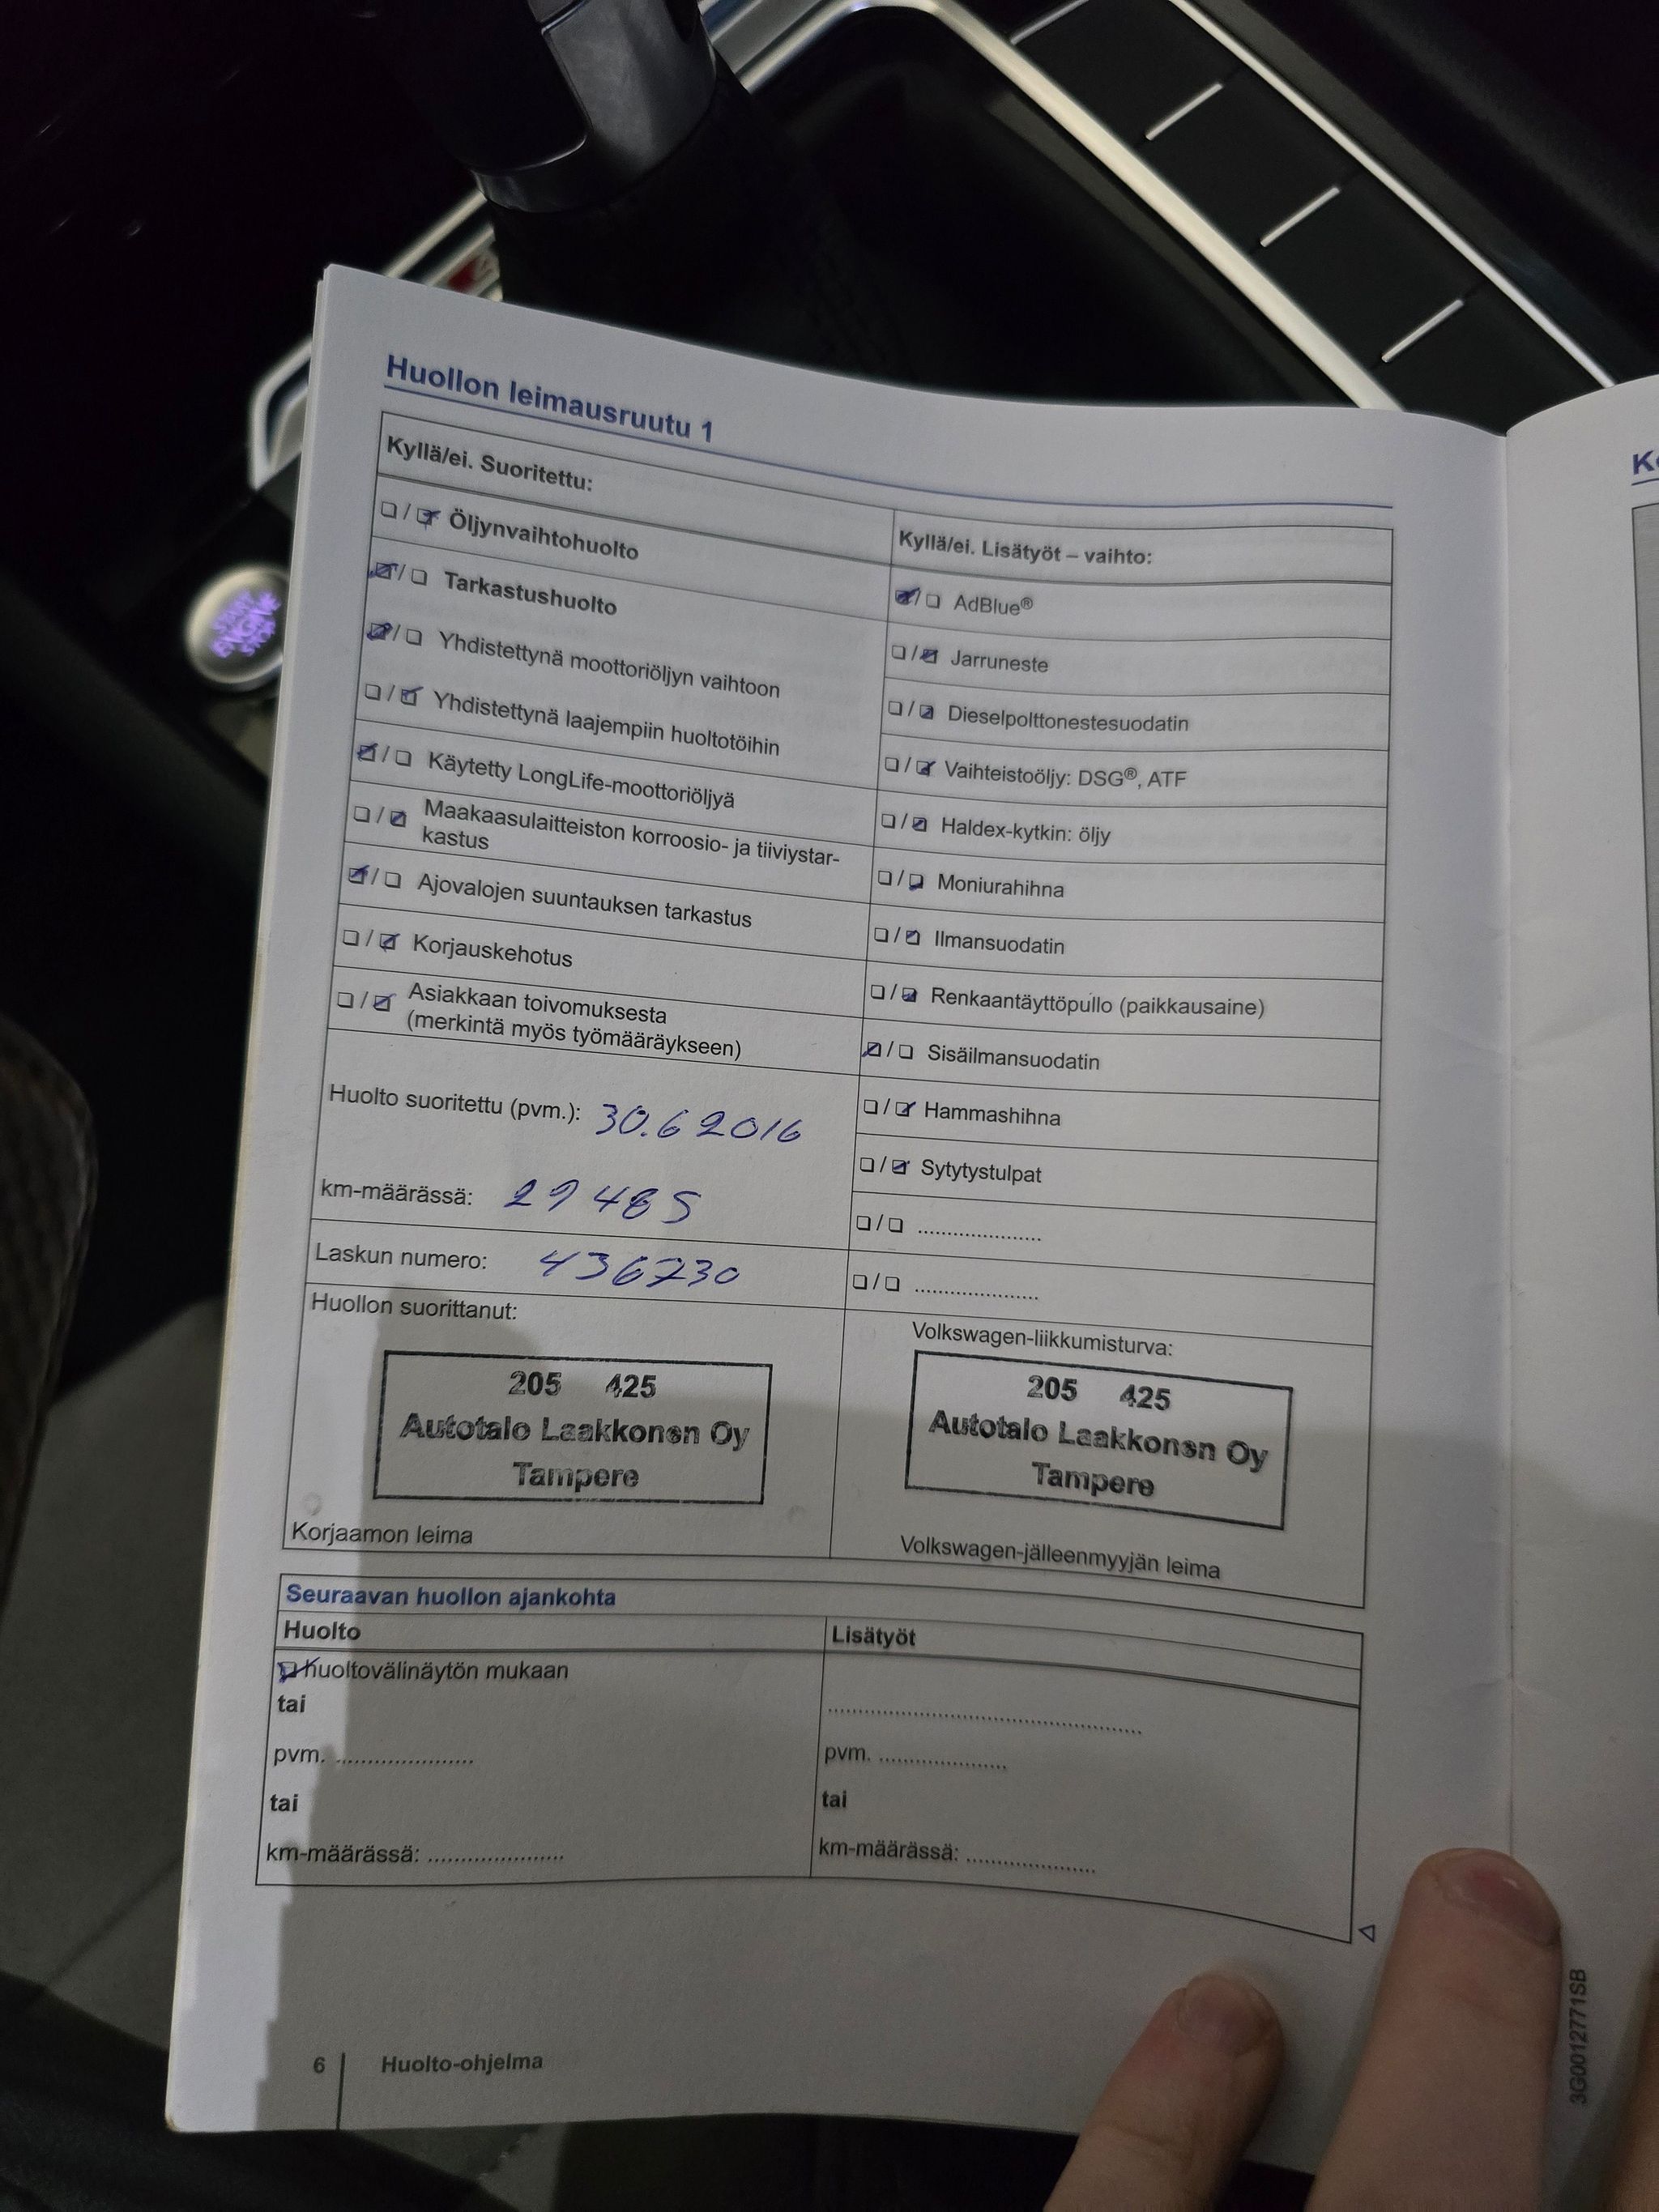 START
ENGINE
STOP
Huollon leimausruutu 1
Kyllä/ei. Suoritettu:
☐ / ☑ Öljynvaihtohuolto
☑ / ☐ Tarkastushuolto
☑ / ☐ Yhdistettynä moottoriöljyn vaihtoon
☐ / ☑ Yhdistettynä laajempiin huoltotöihin
☑ / ☐ Käytetty LongLife-moottoriöljyä
☐ / ☑ Maakaasulaitteiston korroosio- ja tiiviystar-
kastus
☑ / ☐ Ajovalojen suuntauksen tarkastus
☐ / ☑ Korjauskehotus
☐ / ☑ Asiakkaan toivomuksesta
(merkintä myös työmääräykseen)
Huolto suoritettu (pvm.): 30.6 2016
km-määrässä: 29 485
Laskun numero: 436730
Huollon suorittanut:
205 425
Autotalo Laakkonen Oy
Tampere
Korjaamon leima
Kyllä/ei. Lisätyöt – vaihto:
☑ / ☐ AdBlue®
☐ / ☑ Jarruneste
☐ / ☑ Dieselpolttonestesuodatin
☐ / ☑ Vaihteistoöljy: DSG®, ATF
☐ / ☑ Haldex-kytkin: öljy
☐ / ☑ Moniurahihna
☐ / ☑ Ilmansuodatin
☐ / ☑ Renkaantäyttöpullo (paikkausaine)
☑ / ☐ Sisäilmansuodatin
☐ / ☑ Hammashihna
☐ / ☑ Sytytystulpat
☐ / ☐ .....................
☐ / ☐ .....................
Volkswagen-liikkumisturva:
205 425
Autotalo Laakkonen Oy
Tampere
Volkswagen-jälleenmyyjän leima
Seuraavan huollon ajankohta
Huolto
☑ huoltovälinäytön mukaan
tai
pvm. .......................
tai
km-määrässä: .......................
Lisätyöt
.....................................................
pvm. .....................
tai
km-määrässä: .....................
6 Huolto-ohjelma
3G0012771SB